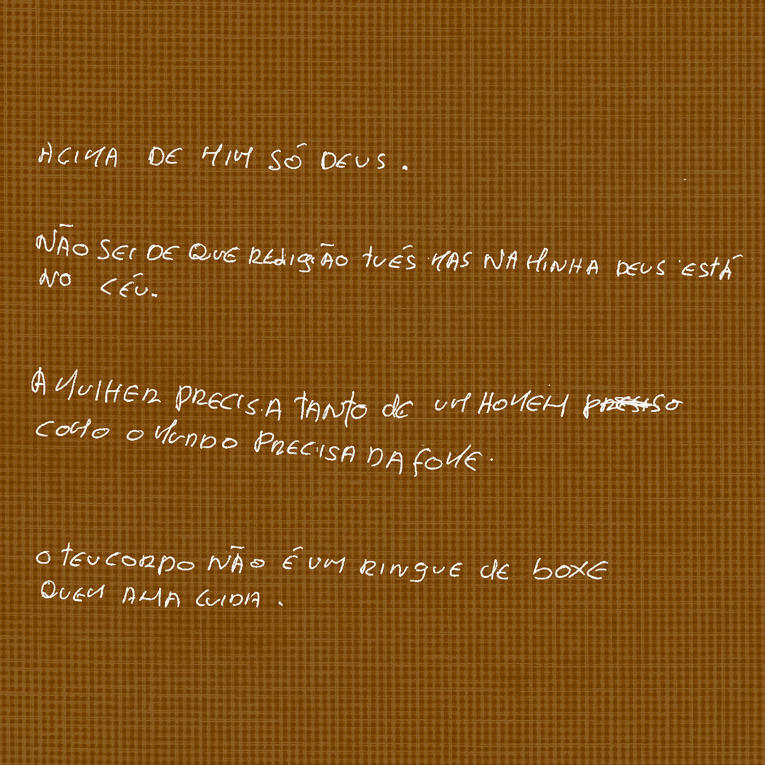 ACIMA DE MIM SÓ DEUS.
NÃO SEI DE QUE RELIGIÃO TU ÉS MAS NA MINHA DEUS ESTÁ
NO CÉU.
A MULHER PRECISA TANTO DE UM HOMEM
COMO O MUNDO PRECISA DA FOME.
O TEU CORPO NÃO É UM RINGUE DE BOXE
QUEM AMA CUIDA.